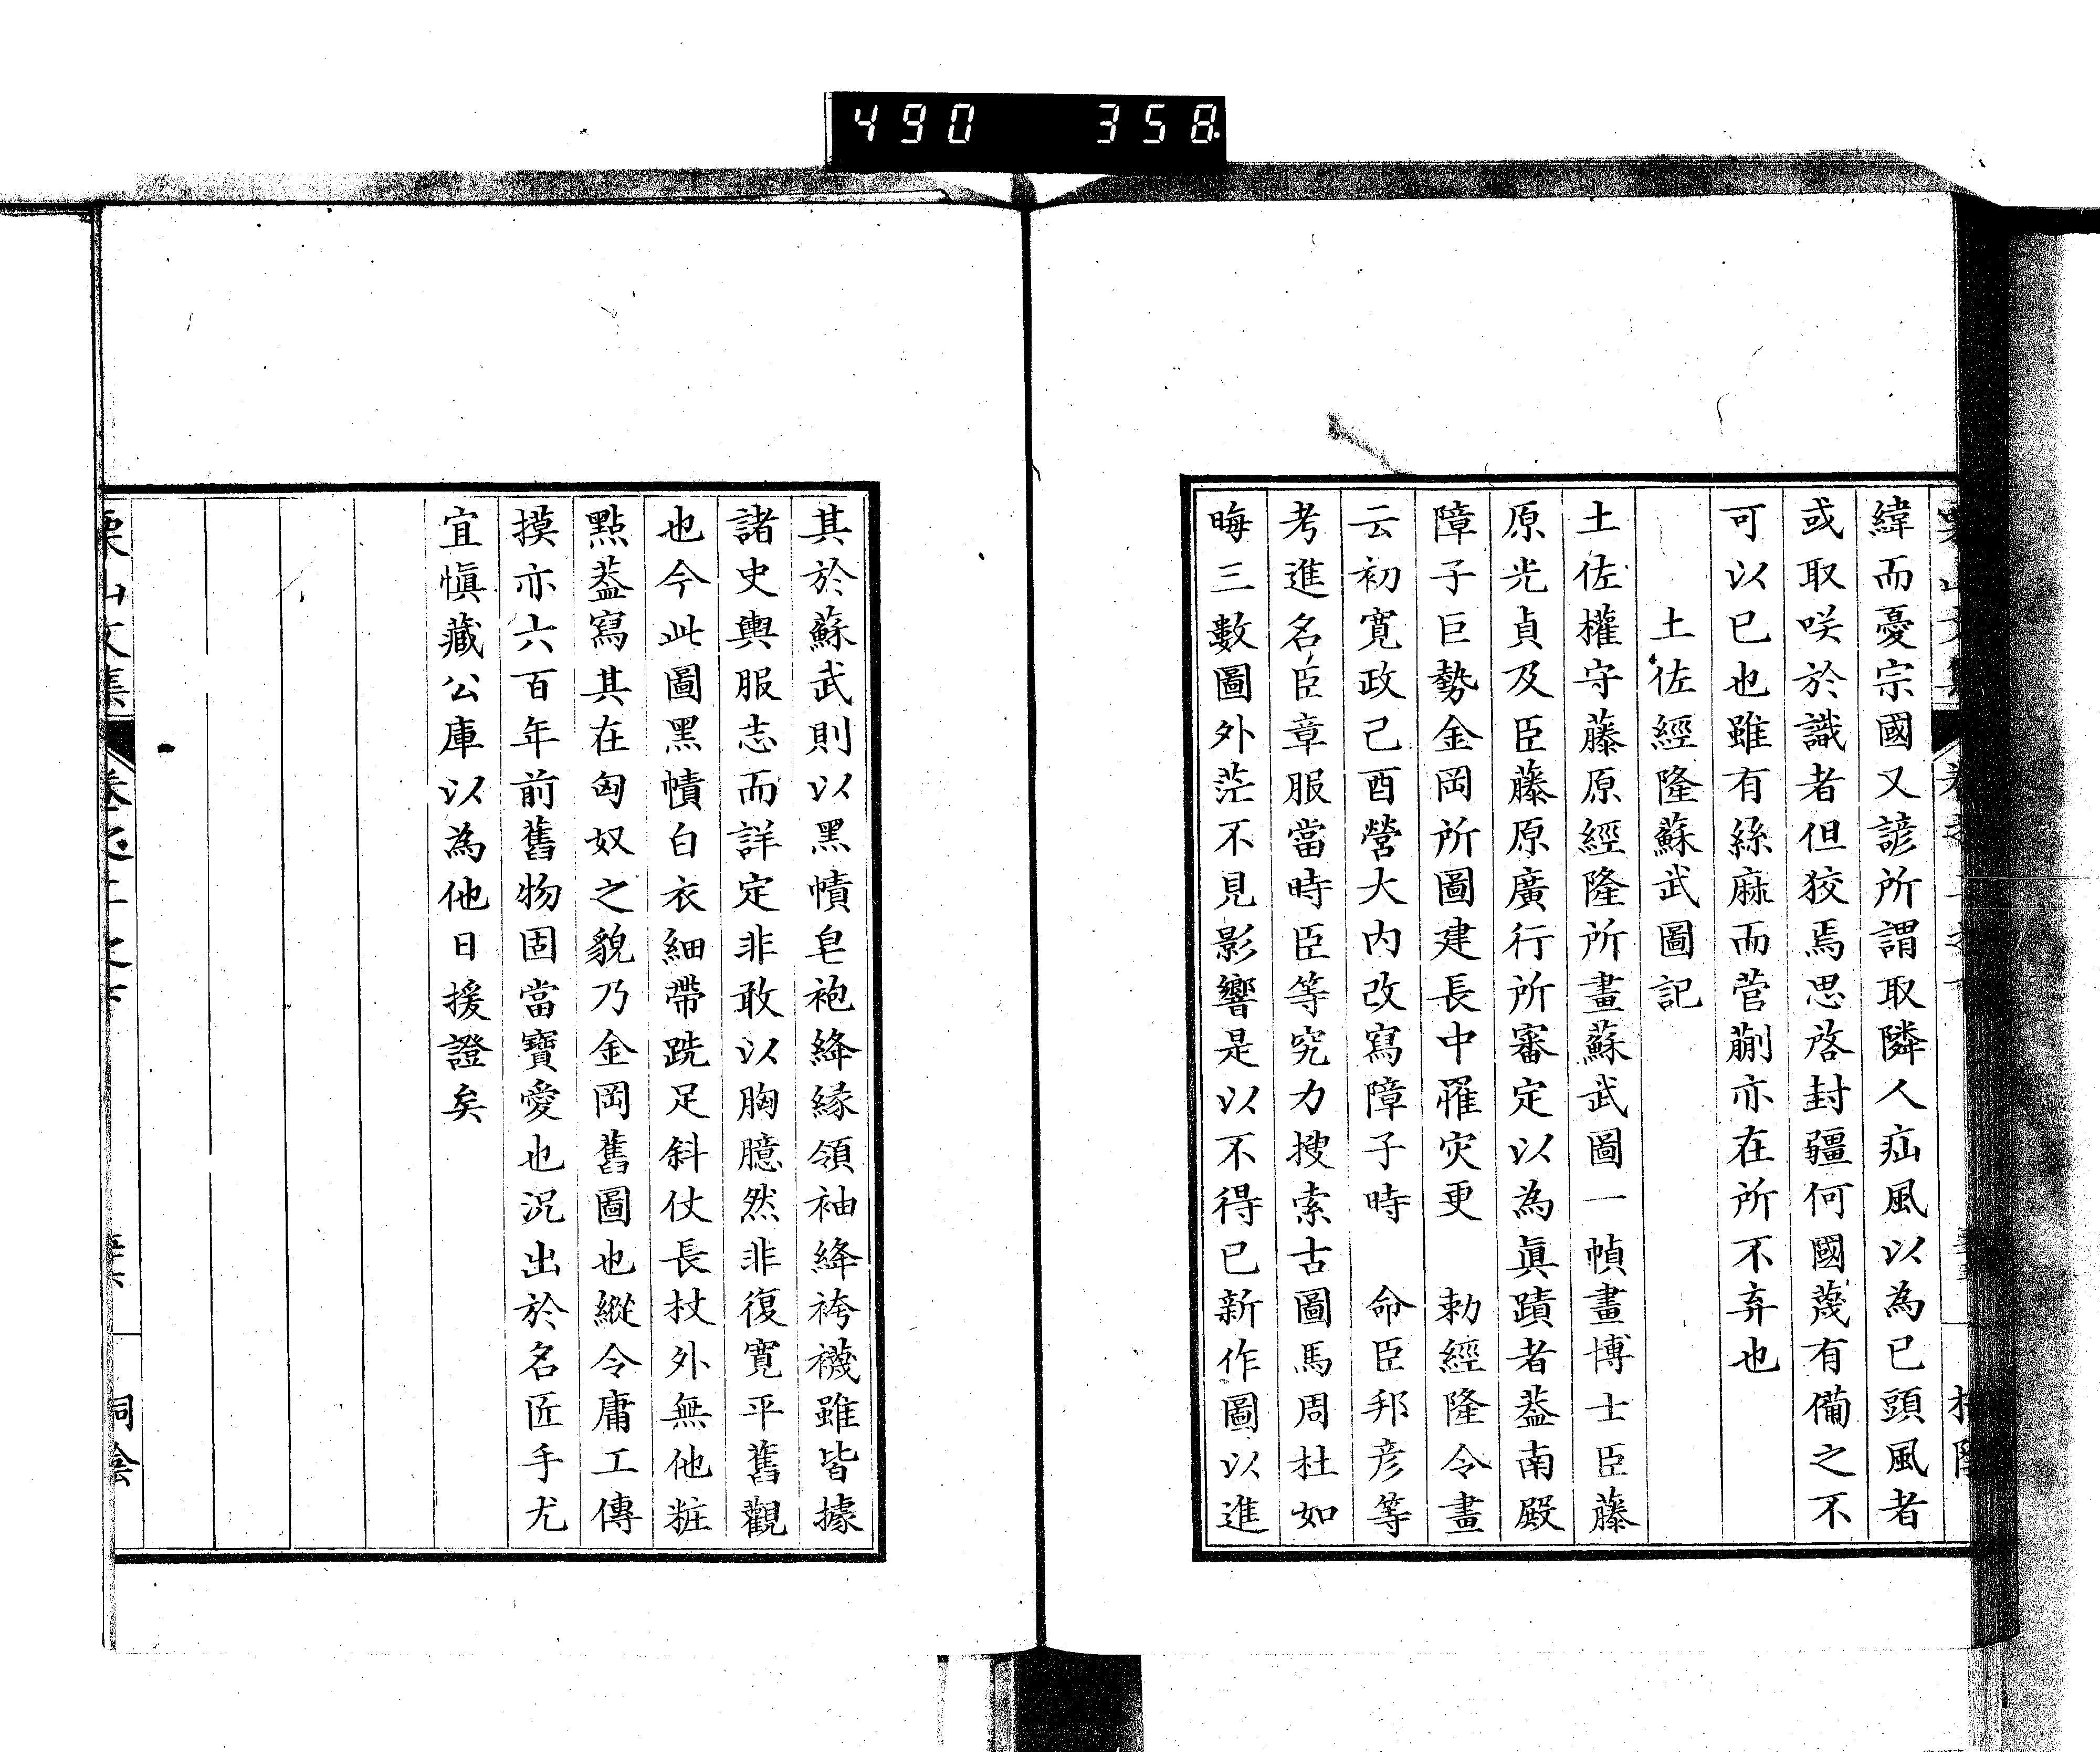 490 358
緯而憂宗國又諺所謂取隣人疝風以為已頭風者
或取咲於識者但狡焉思啓封疆何國蔑有備之不
可以已也雖有絲麻而菅蒯亦在所不弃也
土佐經隆蘇武圖記
土佐權守藤原經隆所畫蘇武圖一幀畫博士臣藤
原光貞及臣藤原廣行所審定以為眞蹟者葢南殿
障子巨勢金岡所圖建長中罹灾更 勅經隆令畫
云初寛政己酉營大内改寫障子時 命臣邦彦等
考進名臣章服當時臣等究力搜索古圖馬周杜如
晦三數圖外茫不見影響是以不得已新作圖以進
其於蘇武則以黑幘皂袍絳縁領袖絳袴襪雖皆據
諸史輿服志而詳定非敢以胸臆然非復寛平舊觀
也今此圖黑幘白衣細帶跣足斜仗長杖外無他粧
點葢寫其在匈奴之貌乃金岡舊圖也縱令庸工傳
摸亦六百年前舊物固當寶愛也況出於名匠手尤
宜愼藏公庫以為他日援證矣
栗山文集